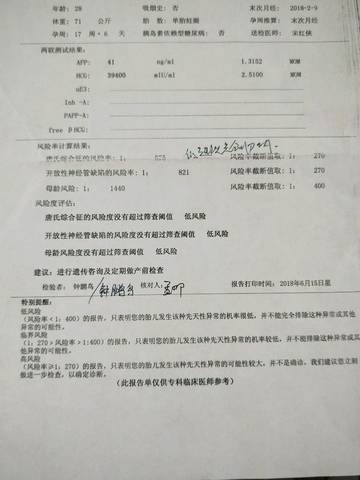 年龄： 28 吸烟史： 否 末次月经 2018-2-9
体重： 71 公斤 胎 数： 单胎妊娠 孕周推算： 末次月经
孕周： 17 周 + 6 天 胰岛素依赖型糖尿病： 否 送检医师： 宋红侠
两联测试结果：
AFP: 41 ng/ml 1.3152 MOM
HCG: 39400 mIU/ml 2.5100 MOM
uE3:
Inh -A:
PAPP-A:
free βHCG:
风险率计算结果：
唐氏综合征的风险率： 1： 风险率截断值取： 1： 270
开放性神经管缺陷的风险率： 1： 821 风险率截断值取： 1： 270
母龄风险： 1： 1440 风险率截断值取： 1： 400
风险度评估：
唐氏综合征的风险度没有超过筛查阈值 低风险
开放性神经管缺陷的风险度没有超过筛查阈值 低风险
母龄风险度没有超过筛查阈值 低风险
建议：进行遗传咨询及定期做产前检查
检验者： 钟鹏鸟 核对人： 报告打印时间： 2018年6月15日星
特别提醒：
低风险
（风险率＜1：400）的报告，只表明您的胎儿发生该种先天性异常的机率很低，并不能完全排除这种异常或其他
异常的可能性。
临界风险
（1：270＞风险率＞1:400）的报告，只表明您的胎儿发生该种先天性异常的机率较低，并不能排除这种异常或其
他异常的可能性。
高风险
（风险率≥1：270）的报告，只表明您的胎儿发生该种先天性异常的可能性较大，并不是确诊。我们建议您立刻
做进一步检查，以确定诊断。
（此报告单仅供专科临床医师参考）